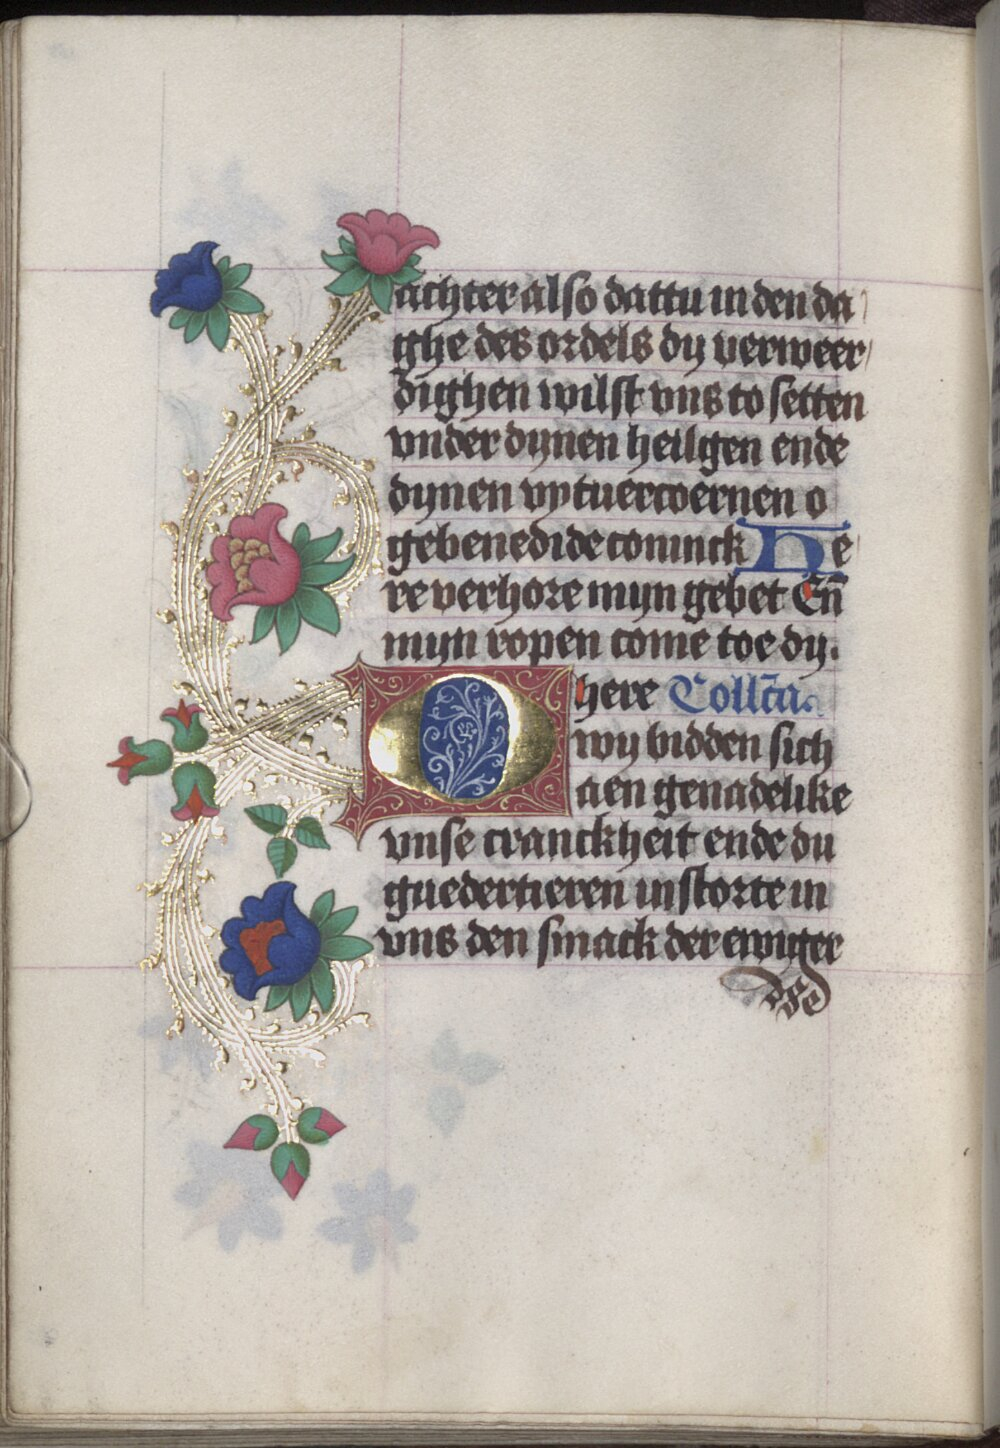 achter also dattu in den da
ghe des ordels dy verweer
dighen wilst vns to setten
vnder dynen heilgen ende
dynen vytuercoernen o
gebenedide coninck He
re verhore mijn gebet Eñ
mijn ropen come toe dy.
O here Collc̄ta
wy bidden sich
aen genadelike
vnse cranckheit ende du
guedertieren instorte in
vns den smack der ewiger